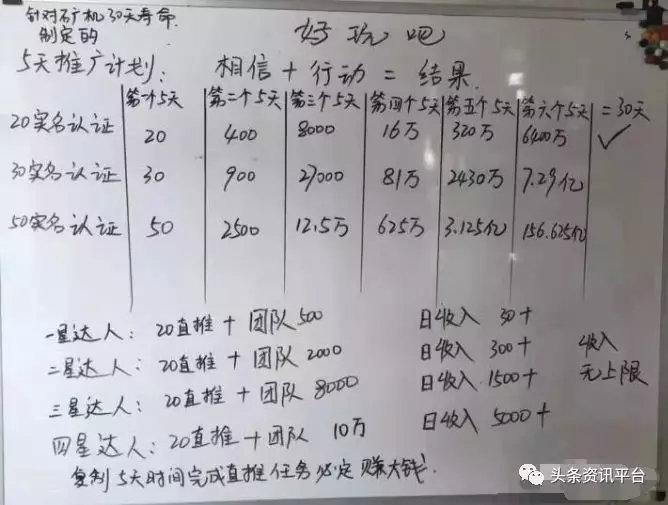 针对矿机30天寿命
制定的
好玩吧
5天推广计划: 相信 + 行动 = 结果.
第一个5天 第二个5天 第三个5天 第四个5天 第五个5天 第六个5天 =30天
20实名认证 20 400 8000 16万 320万 6400万 ✓
30实名认证 30 900 27000 81万 2430万 7.29亿
50实名认证 50 2500 12.5万 625万 3.125亿 156.625亿
一星达人: 20直推 + 团队500 日收入 30+
二星达人: 20直推 + 团队2000 日收入 300+ 收入
三星达人: 20直推 + 团队8000 日收入 1500+ 无上限
四星达人: 20直推 + 团队 10万 日收入 5000+
复制5天时间完成直推任务必定赚大钱.
头条资讯平台